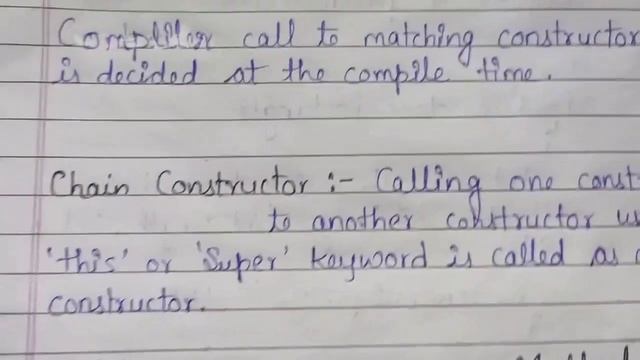 Compiler call to matching constructor
is decided at the compile time.
Chain Constructor :- Calling one const
to another constructor us
'this' or 'Super' keyword is called as
constructor.